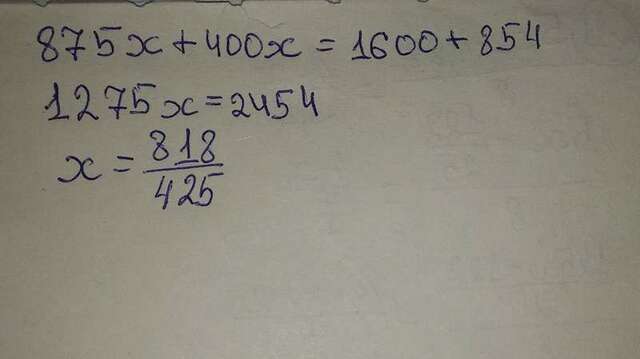 875x+400x=1600+854
1275x=2454
x=818/425